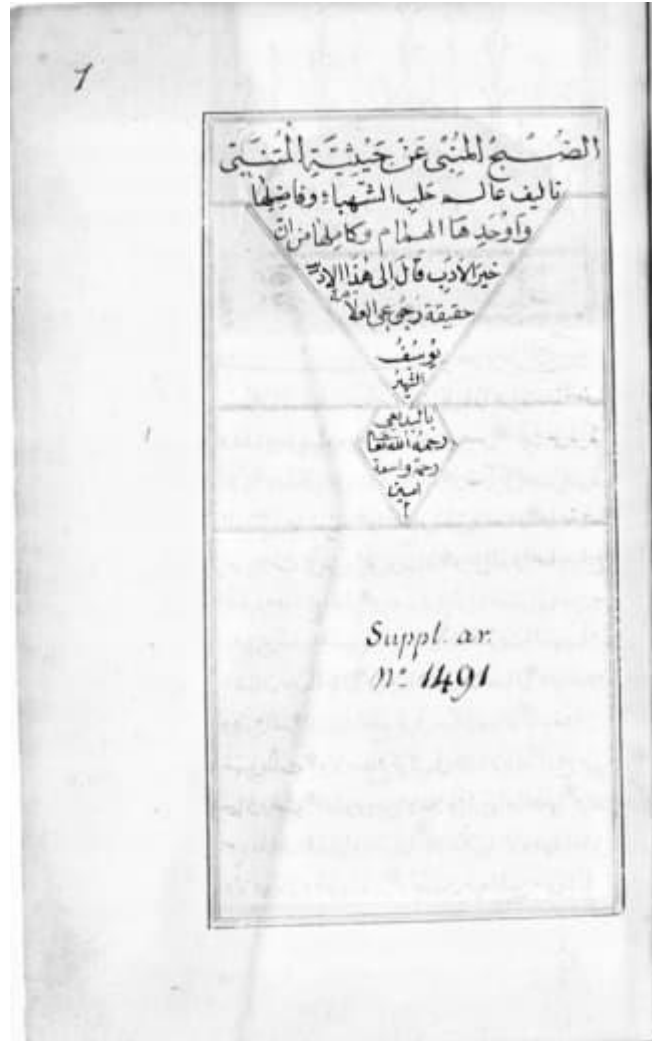 1
الصُّبحُ المُنْبِى عَنْ حَيْثِيَّةِ الْمُتَنَبِّى
تاليف عالم حلب الشهباء وفاضِلِها
وَاوْحَدِهَا الهمام وكامِلها من ان
خيرَ الأدب قالَ الى هٰذا
حقيقة رجُوعى
يُوسُفُ
الشهير
بالبديعى
رحمهُ الله تعا
رحمة واسعة
امين
Suppl. ar.
N° 1491